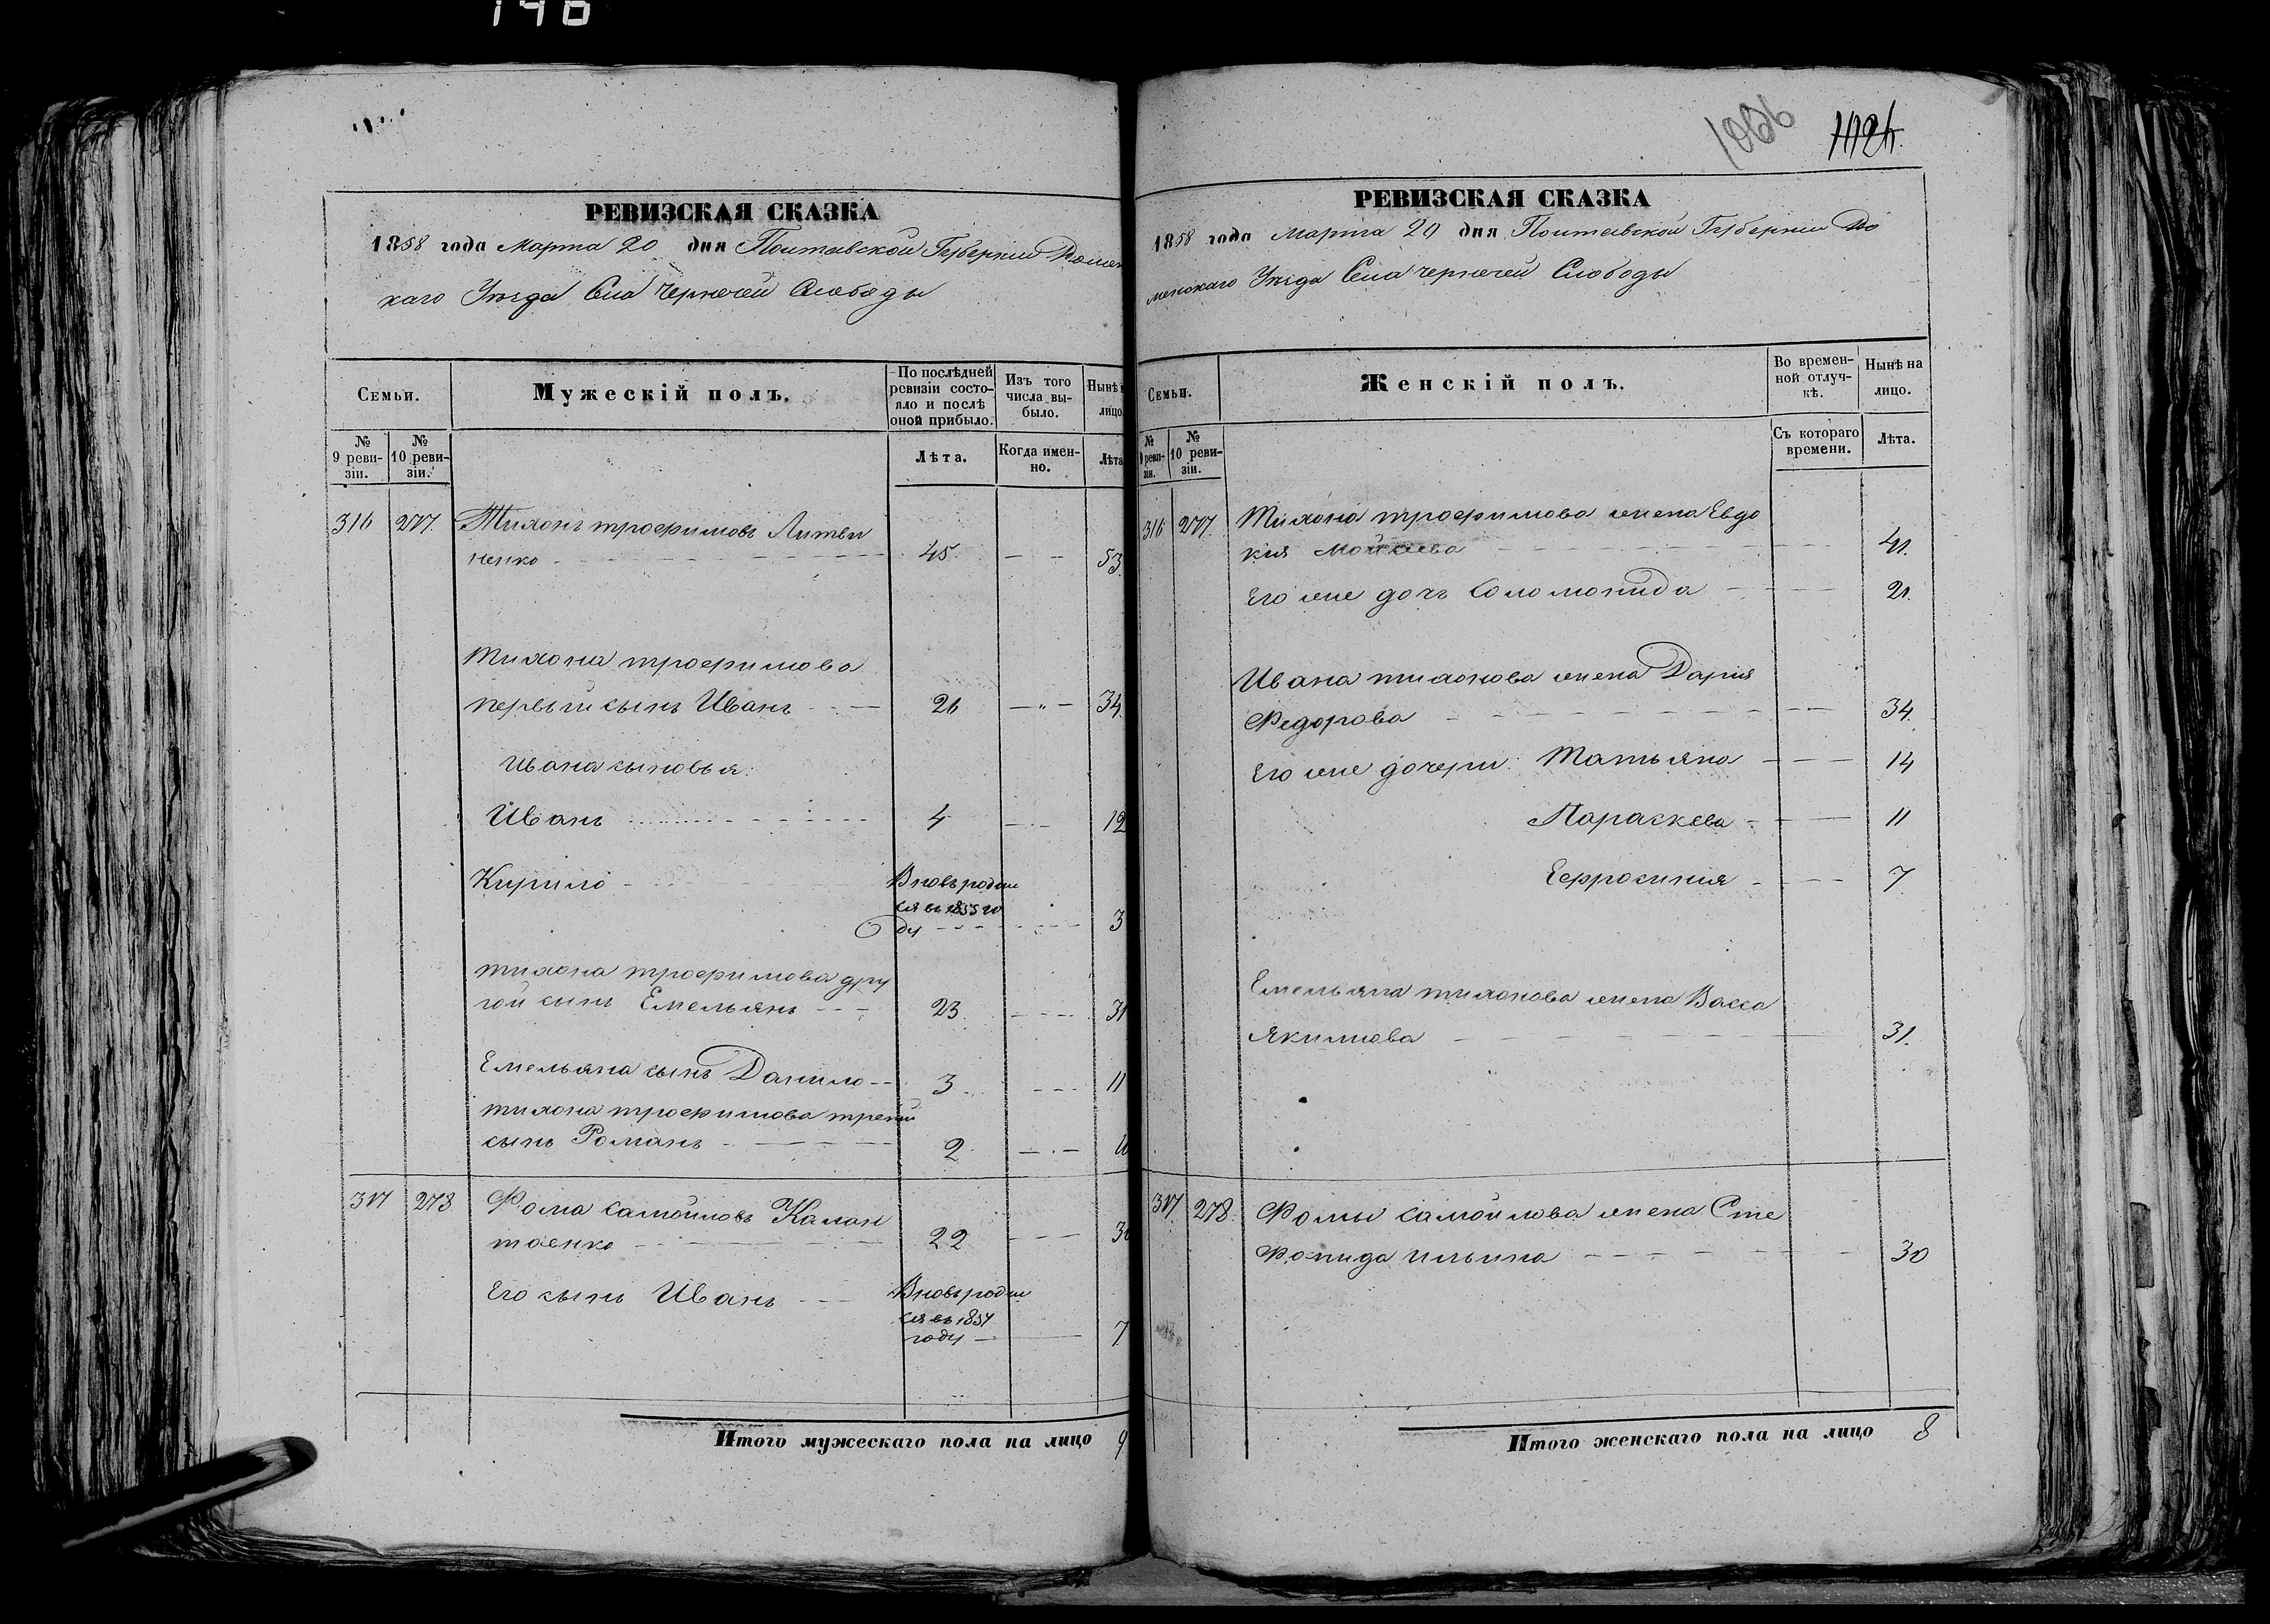 146
РЕВИЗСКАЯ СКАЗКА
1858 года Марта 20 дня Полтавской Губернии Ромен
каго Уѣзда Села Чернечей Слободы
Семьи.
Мужескій полъ.
По послѣдней ревизіи состояло и послѣ оной прибыло.
Изъ того числа выбыло.
Нынѣ
лицо
№ 9 ревизіи.
№ 10 ревизіи.
Лѣта.
Когда именно.
Лѣта
316 277. Тихонъ трофимовъ Литви
ненко 45 53.
тихона трофимова
первый сынъ Иванъ 26 34.
Ивана сыновья:
Иванъ 4 12
Кирило Вновь родил
ся въ 1855 го
ду 3
тихона трофимова дру
гой сынъ Емельянъ 23 31
Емельяна сынъ Данило 3 11
тихона трофимова третий
сынъ Романъ 2
317 278 Фома самойловъ Калан
таенко 22 30
Его сынъ Иванъ Вновь родил
ся въ 1851
году 7.
Итого мужескаго пола на лицо 9
1124.
РЕВИЗСКАЯ СКАЗКА
1858 года Марта 20 дня Полтавской Губернии Ро
менскаго Уѣзда Села чернечей Слободы
Семьи.
Женскій полъ.
Во временной отлучкѣ.
Нынѣ на лицо.
№ 9 ревизіи.
№ 10 ревизіи.
Съ котораго времени.
Лѣта.
316 277. Тихона трофимова жена Евдо
кия Мойсеева 41.
Его же дочь Соломонида 21.
Ивана тихонова жена Дария
Федорова 34.
Его же дочери: Татьяна 14
Параскева 11
Ефросиния 7
Емельяна тихонова жена Васса
Якимова 31.
317. 278. Фомы самойлова жена Сте
фонида ильина 30
Итого женскаго пола на лицо 8